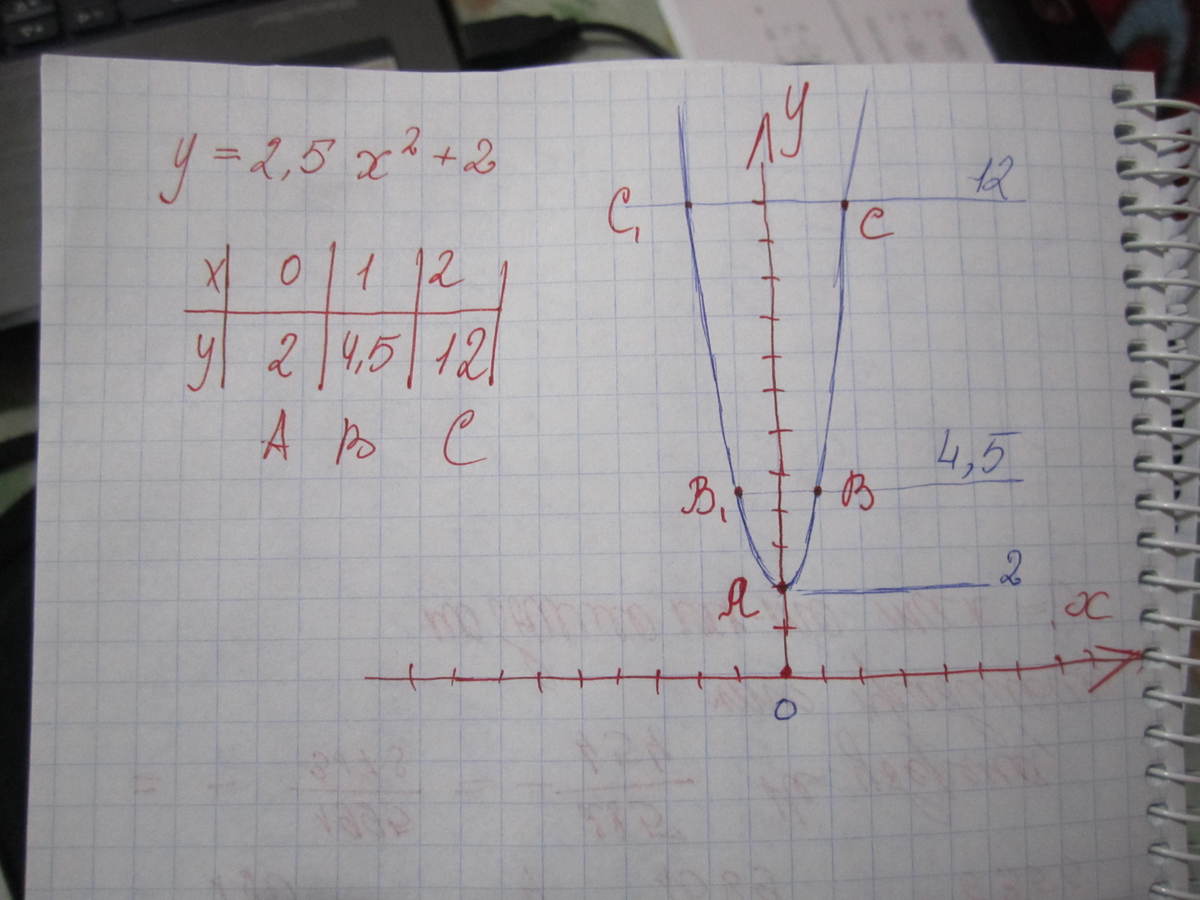 y = 2,5 x² + 2
x | 0 | 1 | 2 |
y | 2 | 4,5 | 12 |
A B C
y
12
C₁ C
4,5
B₁ B
2
A
x
0